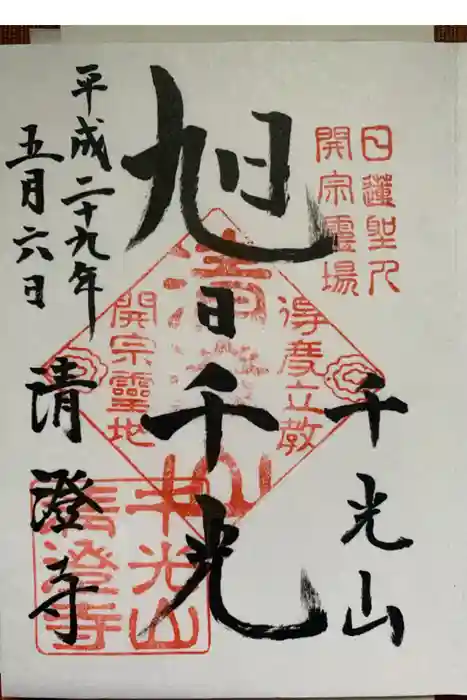 日蓮聖人
開宗靈場
千光山
旭日千光
得度立教
開宗靈地
清澄山
平成二十九年
五月六日
清澄寺
千光山
清澄寺